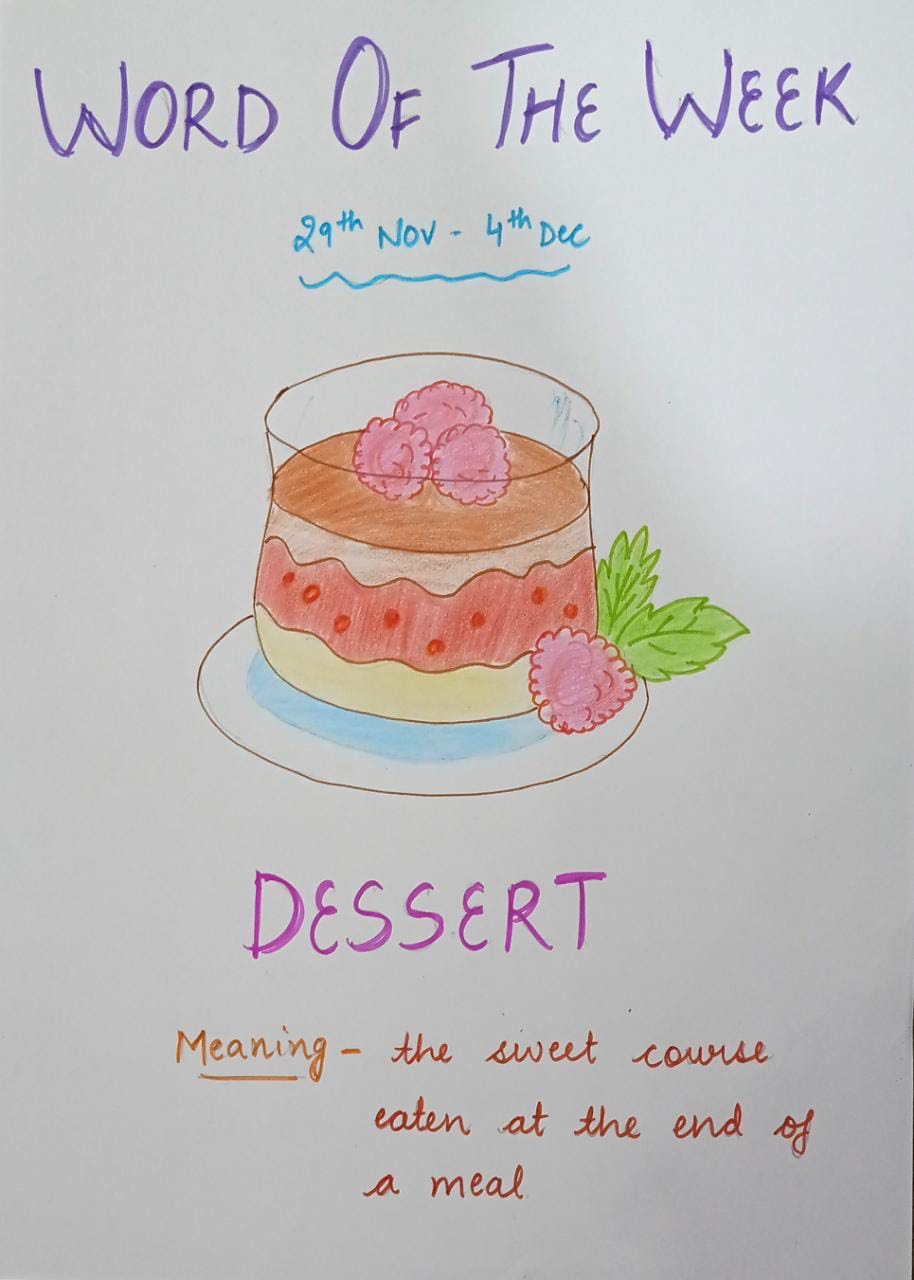 WORD OF THE WEEK
29th NOV - 4th DEC
DESSERT
Meaning - the sweet course
eaten at the end of
a meal